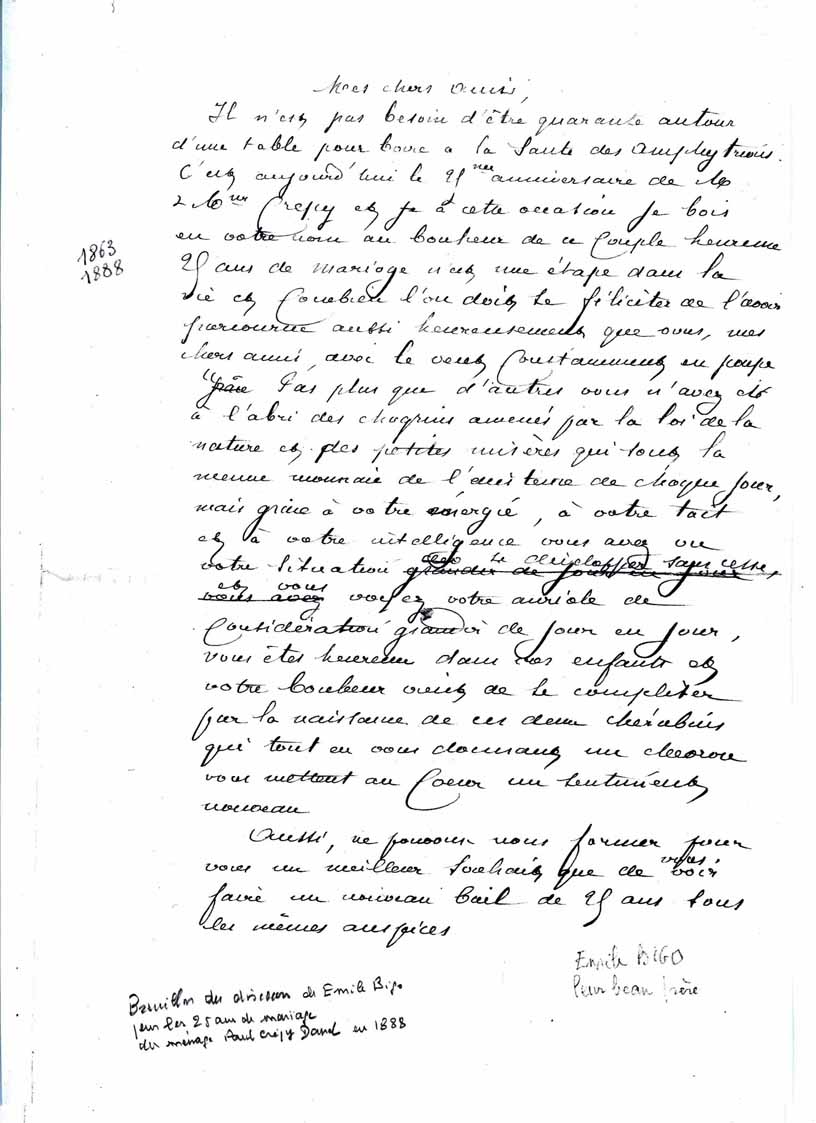 Mes chers Amis,
Il n'est pas besoin d'être quarante autour
d'une table pour boire a la Santé des Amphytrions.
C'est aujourd'hui le 25me anniversaire de M
& Mme Crepy et à cette occasion Je bois
en votre nom au bonheur de ce Couple heureux
1863
1888
25 ans de mariage c'est une étape dans la
vie et Combien l'on doit se féliciter de l'avoir
parcourue aussi heureusement que vous, mes
chers amis, avec le vent Constamment en poupe
Pas plus que d'autres vous n'avez été
à l'abri des chagrins amenés par la loi de la
nature et des petites misères qui sont la
menue monnaie de l'existence de chaque Jour,
mais grâce à votre énergie, à votre tact
et à votre intelligence vous avez vu
se développer sans cesse,
votre Situation grandir de jour en jour
et vous
vous avez voyez votre auréole de
Considération grandir de Jour en Jour,
vous êtes heureux dans vos enfants et
votre bonheur vient de se compléter
par la naissance de ces deux chérubins
qui tout en vous donnant un chevron
vous mettent au Coeur un sentiment
nouveau
Aussi, ne pouvons nous former pour
vous un meilleur Souhait que de vous voir
faire un nouveau bail de 25 ans sous
les mêmes auspices
Emile BIGO
leur beau frère
Brouillon du discours de Emile Bigo
pour les 25 ans de mariage
du ménage Paul Crépy Danel en 1888